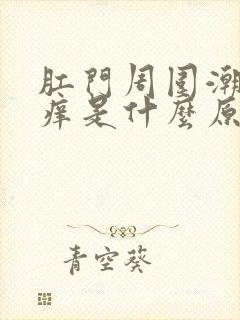 肛門周围潮
痒是什麼原
青空葵